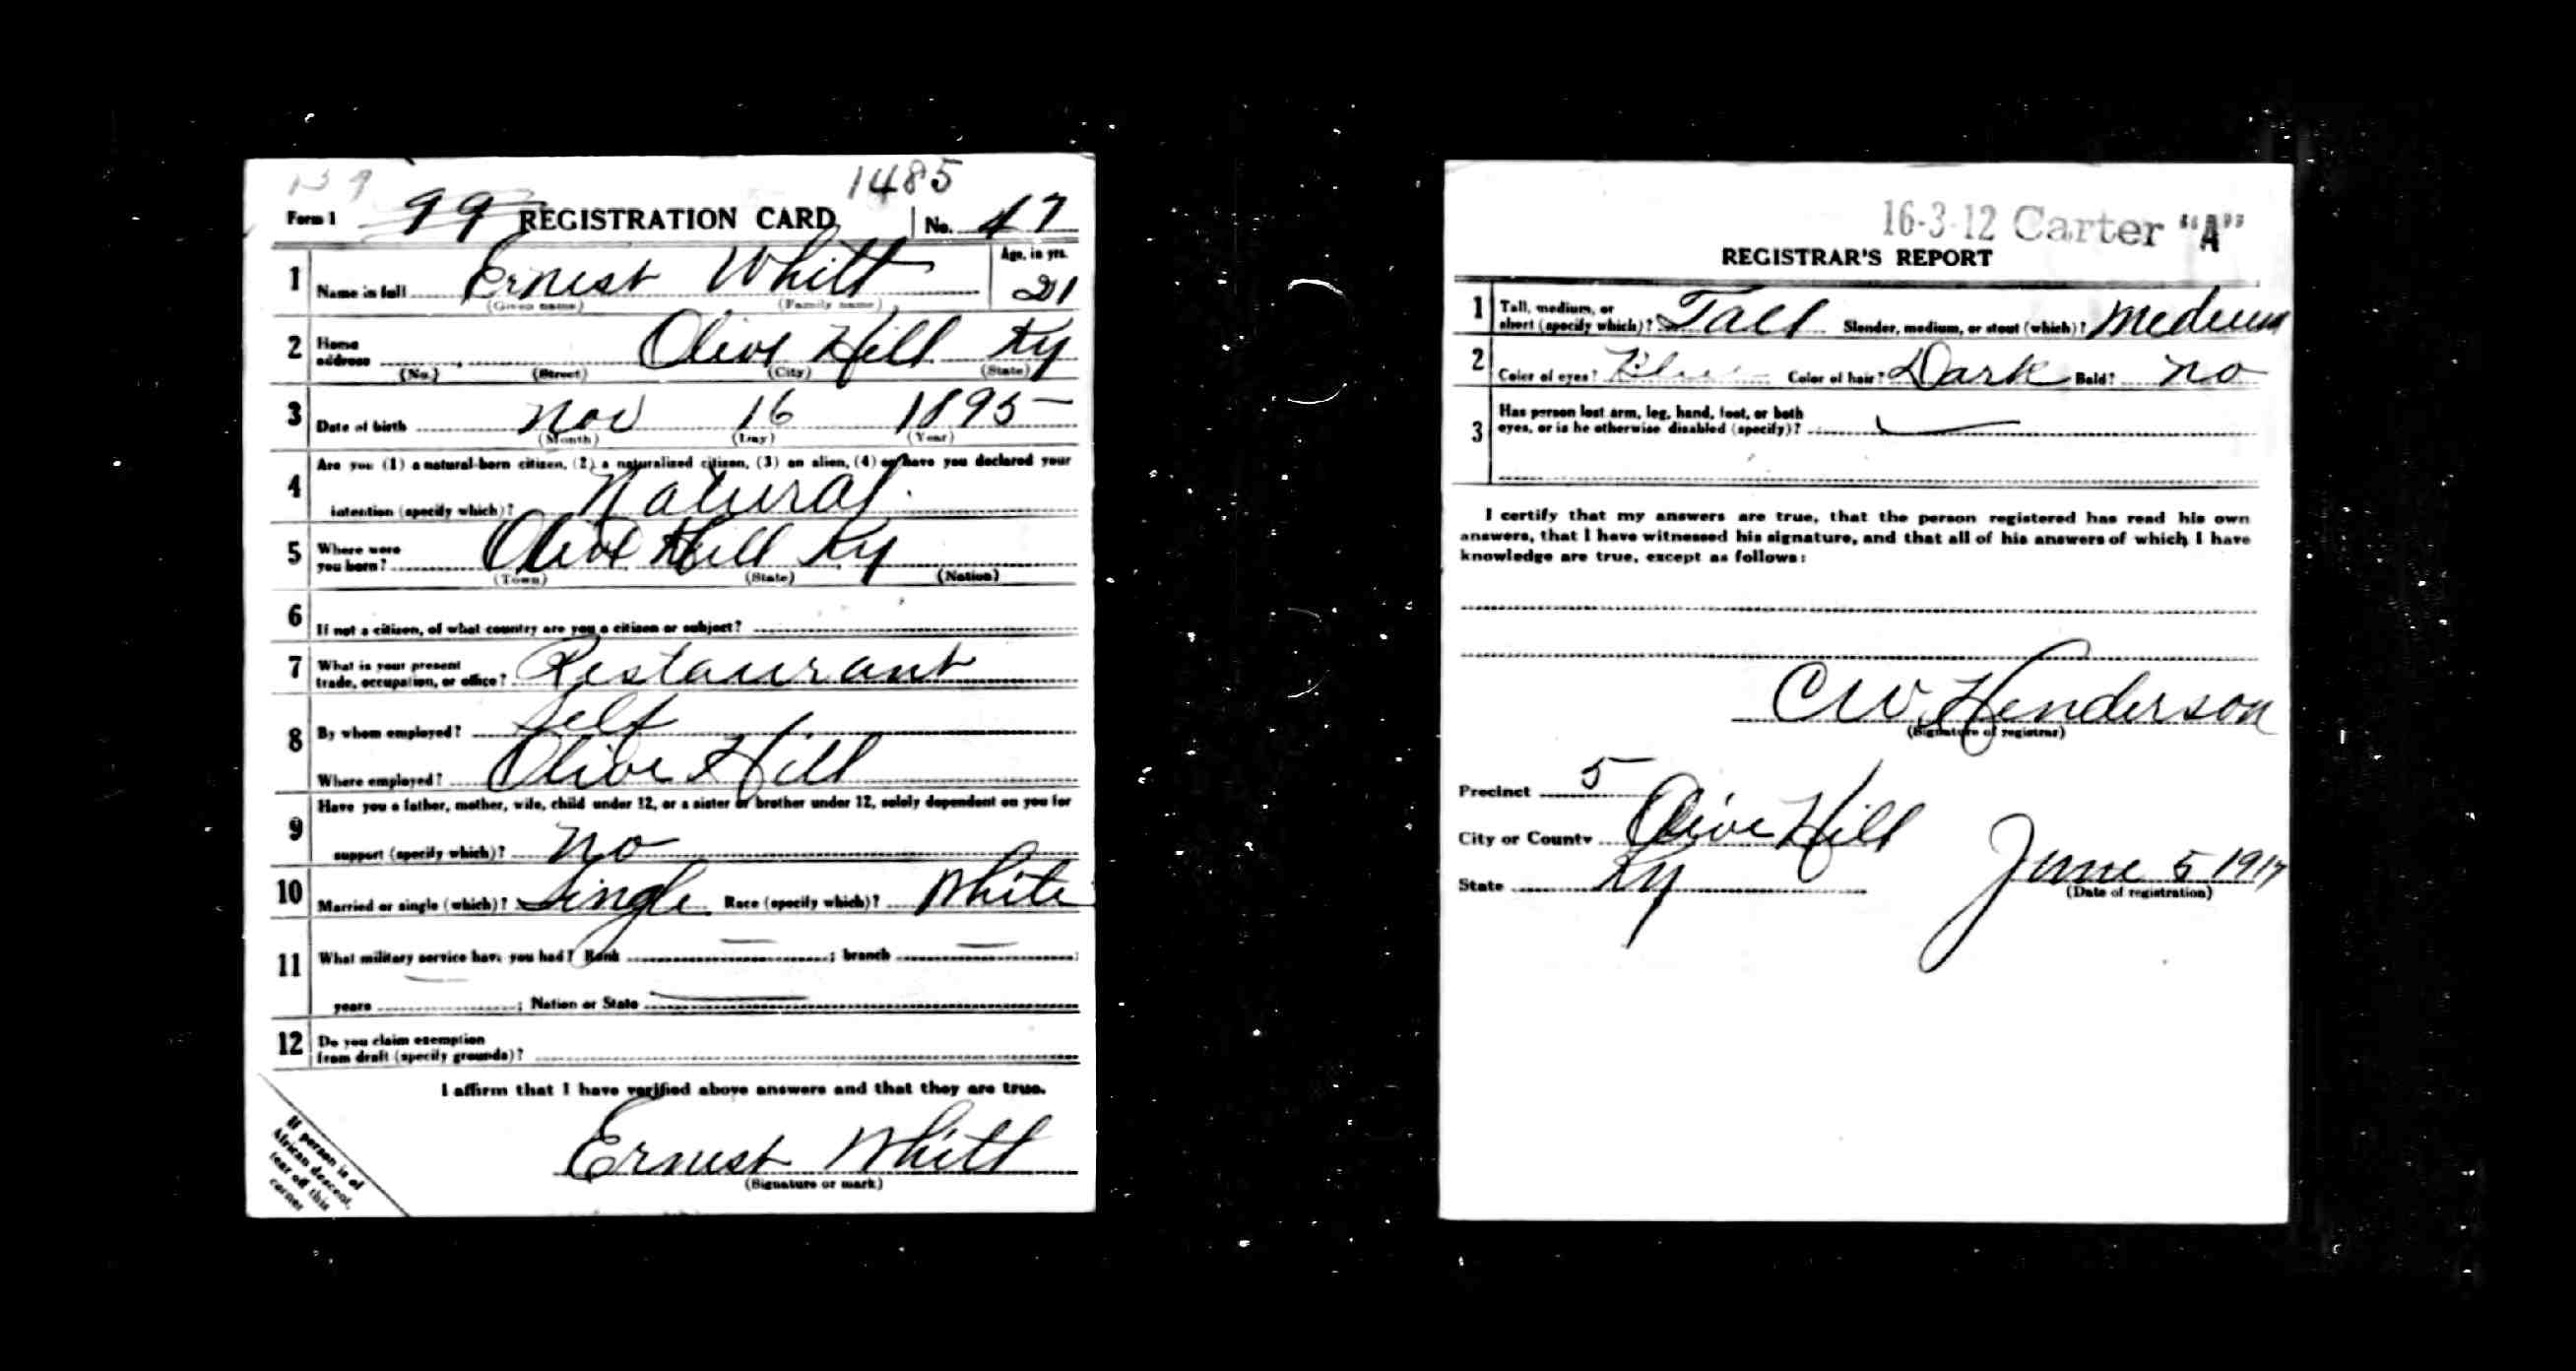 139
1485
Form 1 99 REGISTRATION CARD No. 47
1 Name in full Ernest Whitt Age, in yrs. 21
(Given name) (Family name)
2 Home address Olive Hill Ky
(No.) (Street) (City) (State)
3 Date of birth Nov 16 1895
(Month) (Day) (Year)
4 Are you (1) a natural-born citizen, (2) a naturalized citizen, (3) an alien, (4) or have you declared your
intention (specify which)? Natural
5 Where were you born? Olive Hill Ky
(Town) (State) (Nation)
6 If not a citizen, of what country are you a citizen or subject?
7 What is your present trade, occupation, or office? Restaurant
8 By whom employed? Self
Where employed? Olive Hill
9 Have you a father, mother, wife, child under 12, or a sister or brother under 12, solely dependent on you for
support (specify which)? No
10 Married or single (which)? Single Race (specify which)? White
11 What military service have you had? Rank — ; branch — ;
years — ; Nation or State —
12 Do you claim exemption from draft (specify grounds)?
I affirm that I have verified above answers and that they are true.
Ernest Whitt
(Signature or mark)
If person is of
African descent,
tear off this
corner
16-3-12 Carter "A"
REGISTRAR'S REPORT
1 Tall, medium, or short (specify which)? Tall Slender, medium, or stout (which)? Medium
2 Color of eyes? Blue Color of hair? Dark Bald? No
3 Has person lost arm, leg, hand, foot, or both
eyes, or is he otherwise disabled (specify)? —
I certify that my answers are true, that the person registered has read his own
answers, that I have witnessed his signature, and that all of his answers of which I have
knowledge are true, except as follows:
C W Henderson
(Signature of registrar)
Precinct 5
City or County Olive Hill
State Ky June 5 1917
(Date of registration)